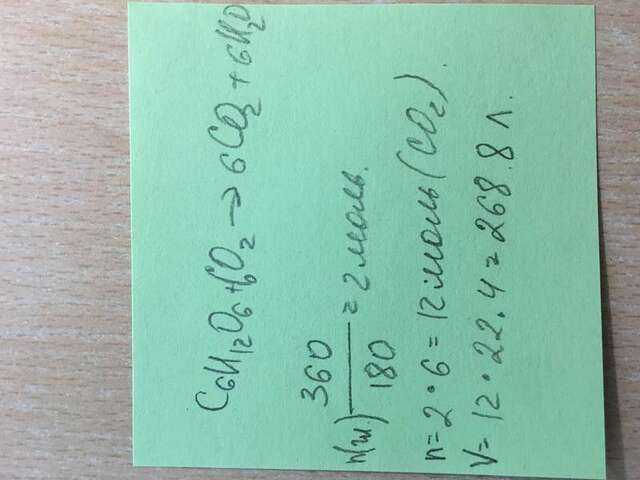 C₆H₁₂O₆ + 6O₂ → 6CO₂ + 6H₂O
n(гл.) 360/180 = 2 моль.
n = 2 · 6 = 12 моль (CO₂).
V = 12 · 22.4 = 268.8 л.